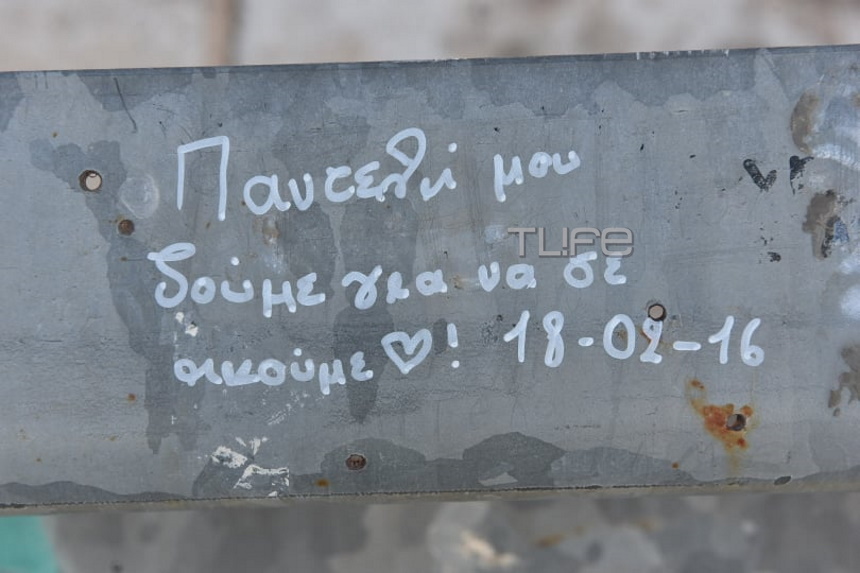 Παντελή μου
ζούμε για να σε
ακούμε♡! 18-02-16
TL!FE